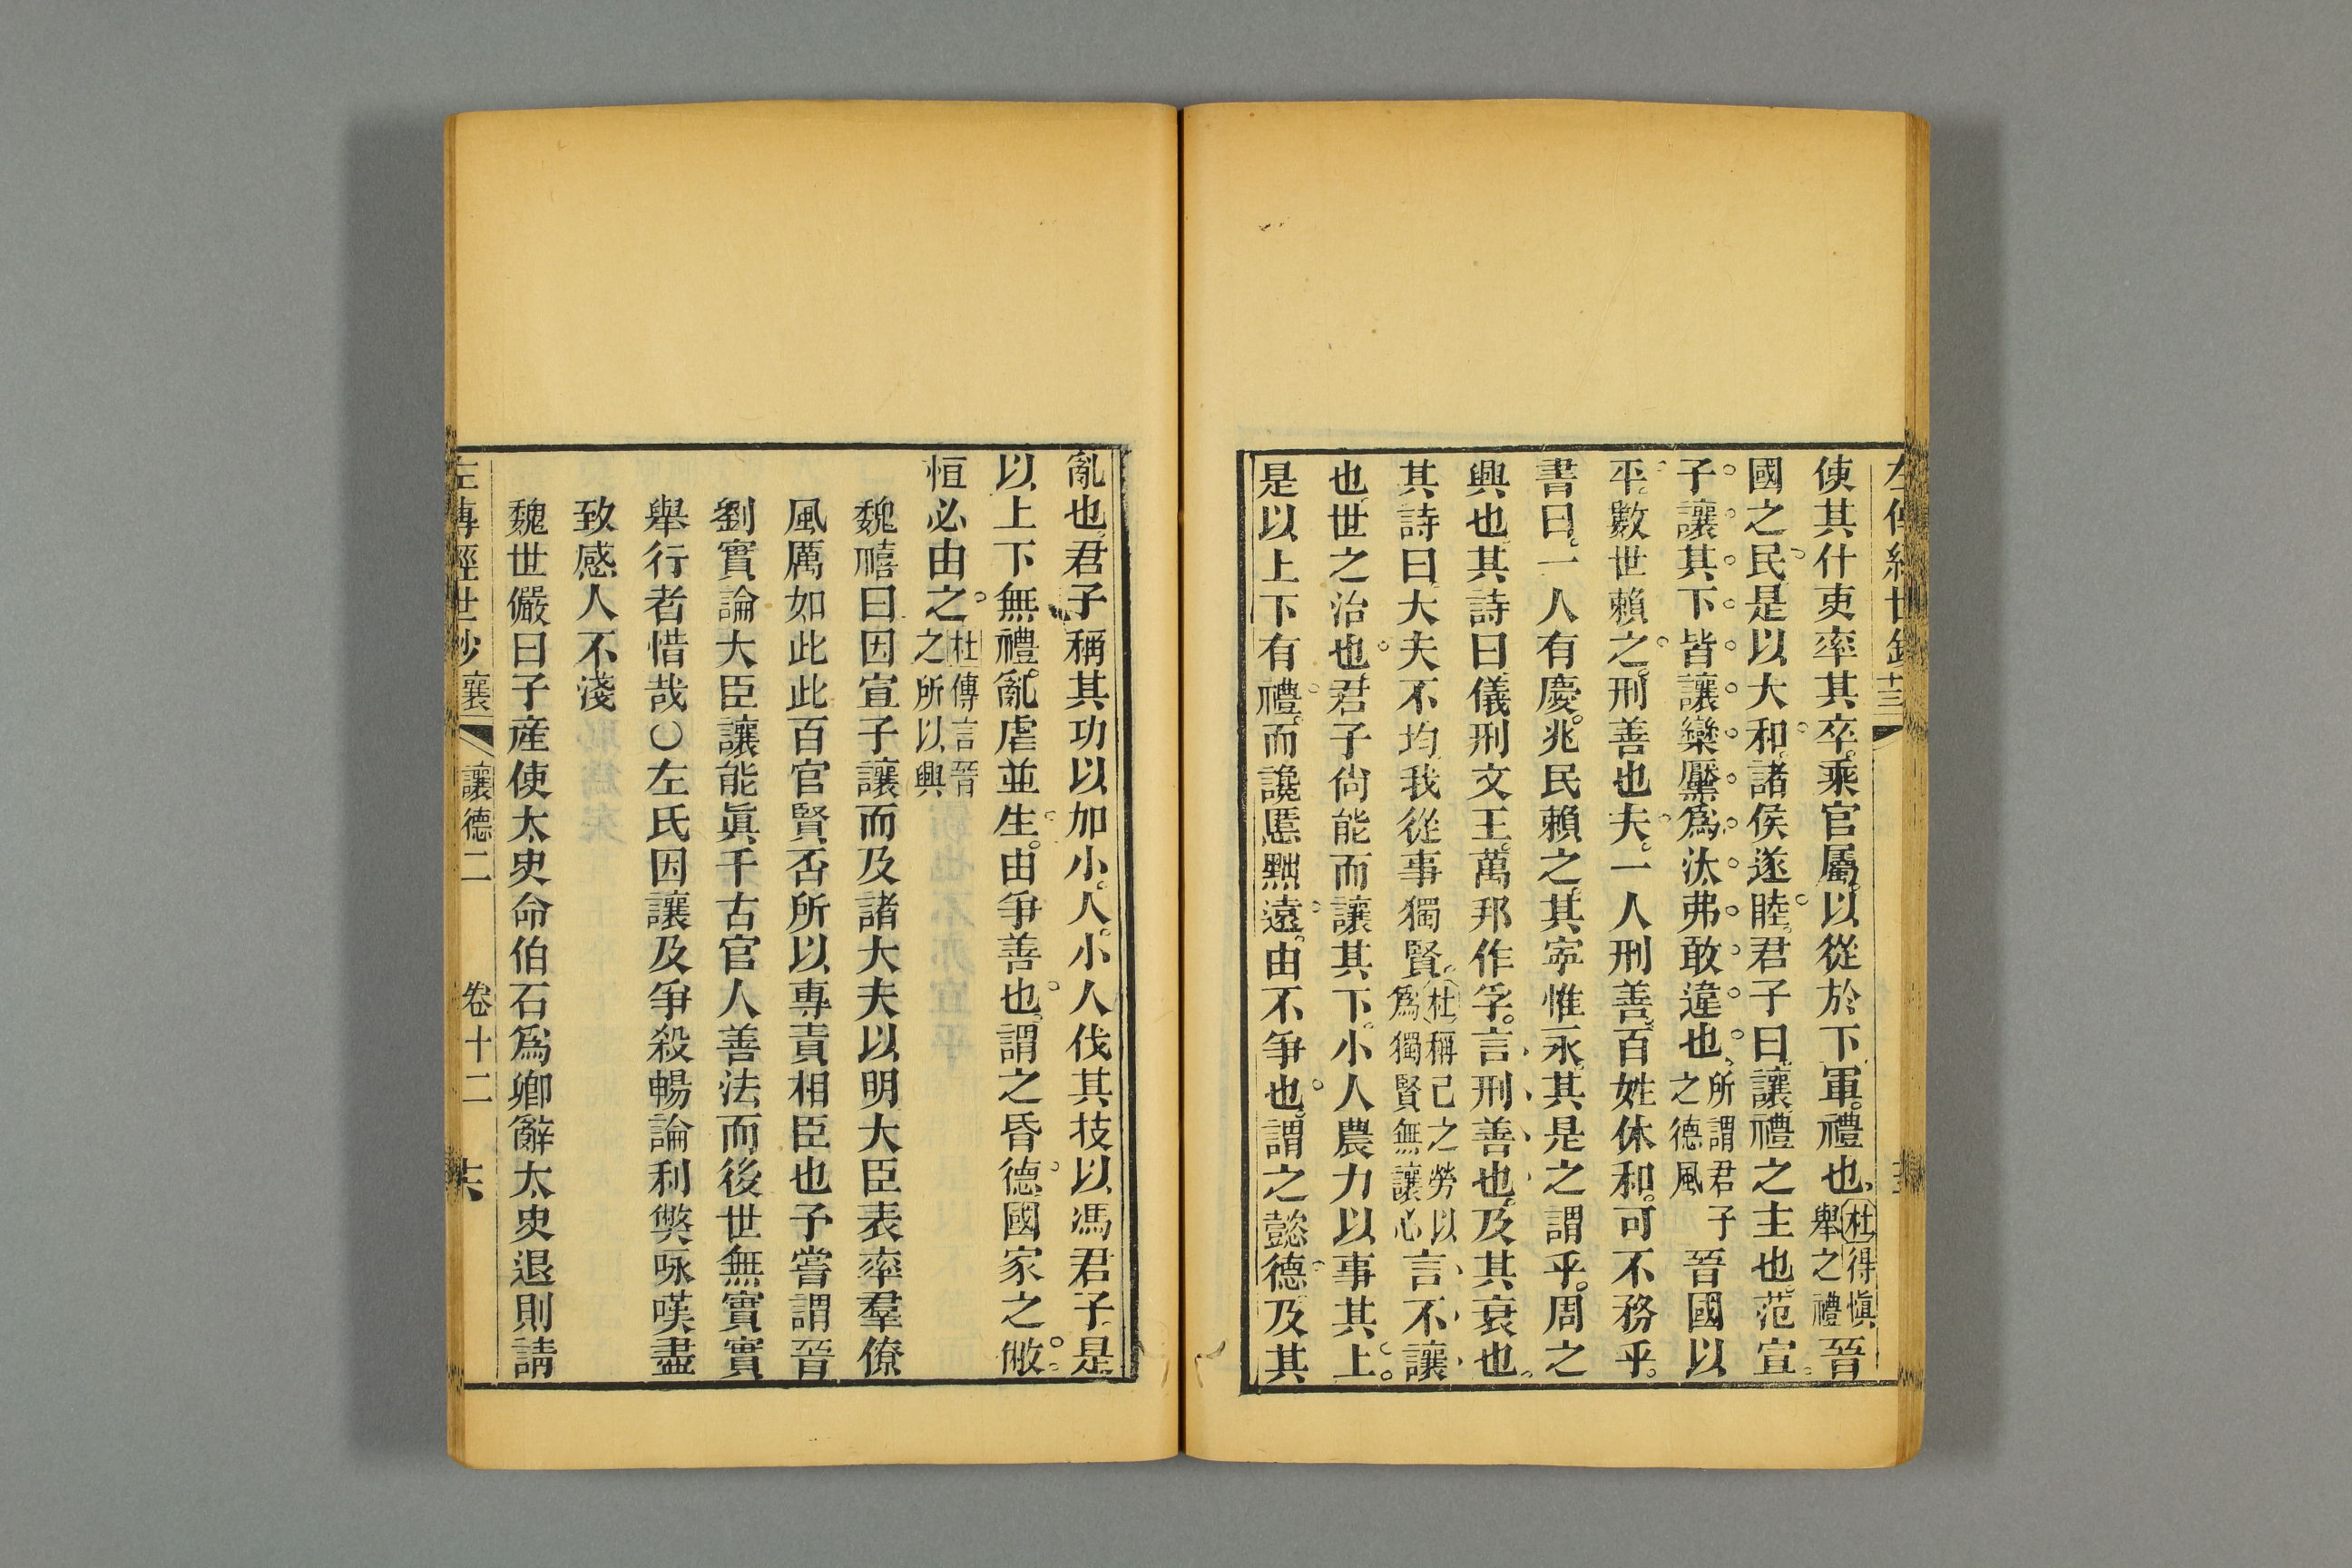 使其什吏率其卒乘官屬以從於下軍禮也杜得愼舉之禮晉
國之民是以大和諸侯遂睦君子曰讓禮之主也范宣
子讓其下皆讓欒黶爲汰弗敢違也所謂君子之德風晉國以
平數世賴之刑善也夫一人刑善百姓休和可不務乎
書曰一人有慶兆民賴之其寜惟永其是之謂乎周之
興也其詩曰儀刑文王萬邦作孚言刑善也及其衰也
其詩曰大夫不均我從事獨賢杜稱己之勞以爲獨賢無讓心言不讓
也世之治也君子尙能而讓其下小人農力以事其上
是以上下有禮而讒慝黜遠由不爭也謂之懿德及其
亂也君子稱其功以加小人小人伐其技以馮君子是
以上下無禮亂虐並生由爭善也謂之昏德國家之敝
恒必由之杜傳言晉之所以興
魏禧曰因宣子讓而及諸大夫以明大臣表率羣僚
風厲如此此百官賢否所以專責相臣也予嘗謂晉
劉實論大臣讓能眞千古官人善法而後世無實實
舉行者惜哉○左氏因讓及爭殺暢論利獘咏嘆盡
致感人不淺
魏世儼曰子產使太史命伯石爲卿辭太史退則請
左傳經世鈔 襄 讓德二 卷十二 十六